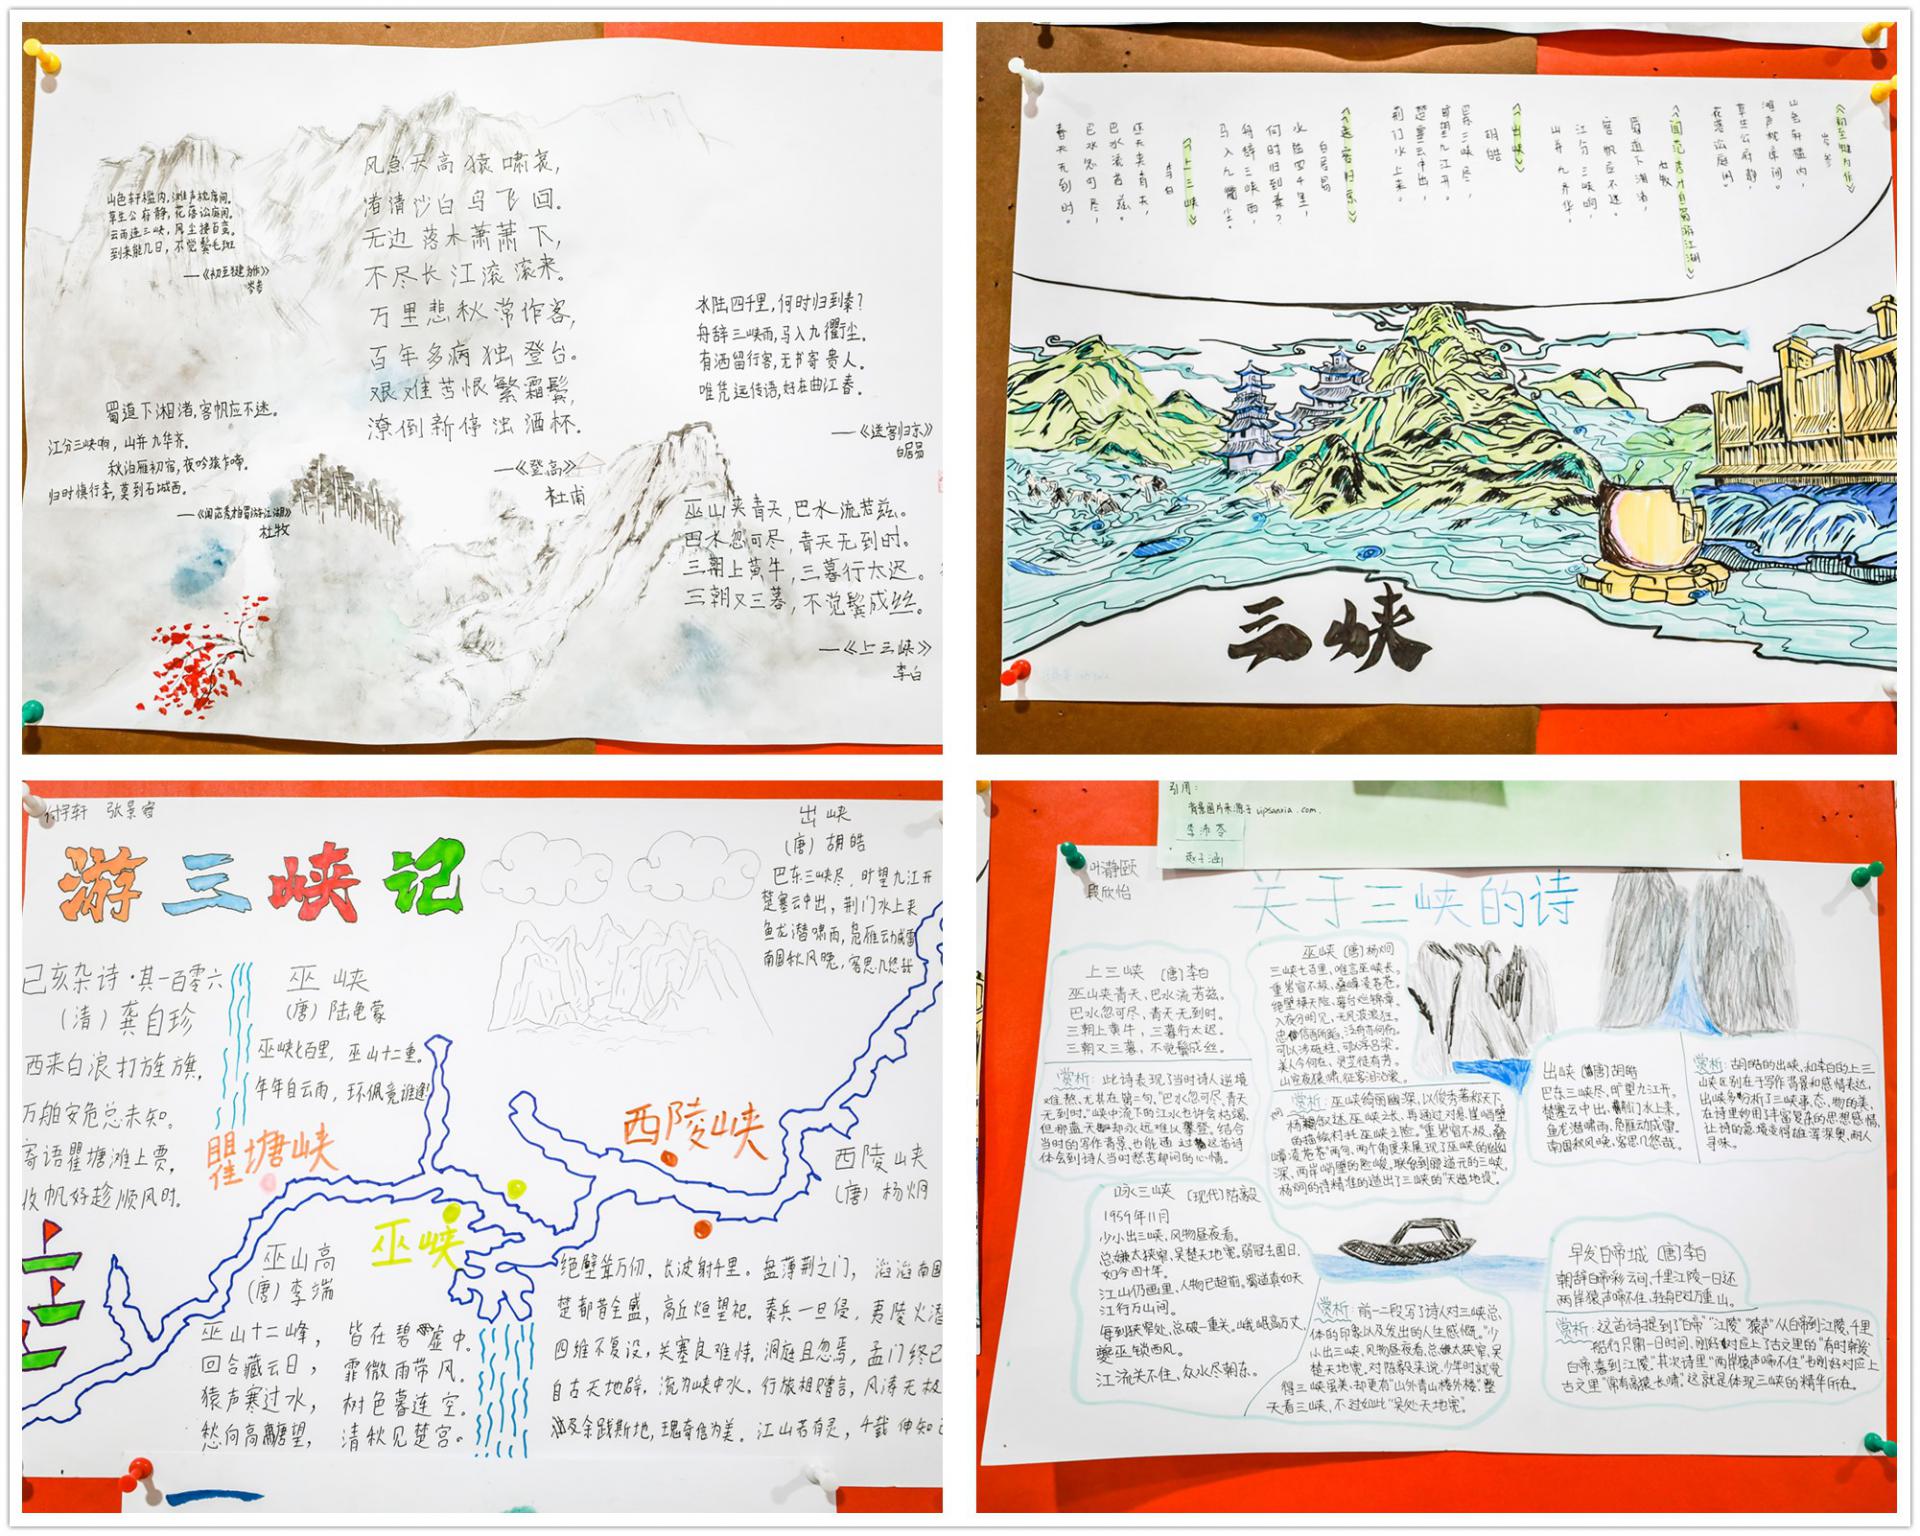 山色轩槛内,滩声枕席间。
草生公府静,花落讼庭闲。
云雨连三峡,风尘接百蛮。
到来能几日,不觉鬓毛斑
——《初至犍为作》
岑参
风急天高猿啸哀,
渚清沙白鸟飞回.
无边落木萧萧下,
不尽长江滚滚来.
万里悲秋常作客,
百年多病独登台.
艰难苦恨繁霜鬓,
潦倒新停浊酒杯.
——《登高》
杜甫
水陆四千里,何时归到秦?
舟辞三峡雨,马入九衢尘.
有酒留行客,无书寄贵人.
唯凭远传语,好在曲江春.
——《送客归京》
白居易
蜀道下湘渚,客帆应不迷.
江分三峡响,山并九华齐.
秋泊雁初宿,夜吟猿乍啼.
归时慎行李,莫到石城西.
杜牧
巫山夹青天,巴水流若兹.
巴水忽可尽,青天无到时.
三朝上黄牛,三暮行太迟.
三朝又三暮,不觉鬓成丝.
——《上三峡》
李白
《初至犍为作》
岑参
山色轩槛内,
滩声枕席间。
草生公府静,
花落讼庭闲。
《闻范秀才自蜀游江湖》
杜牧
蜀道下湘渚,
客帆应不迷。
江分三峡响,
山并九华齐。
《出峡》
胡皓
巴东三峡尽,
旷望九江开。
楚塞云中出,
荆门水上来。
《送客归京》
白居易
水陆四千里,
何时归到秦?
舟辞三峡雨,
马入九衢尘。
《上三峡》
李白
巫山夹青天,
巴水流若兹。
巴水忽可尽,
青天无到时。
三峡
张景睿
游三峡记
出峡
(唐)胡皓
巴东三峡尽,旷望九江开
楚塞云中出,荆门水上来
鱼龙潜啸雨,凫雁动成雷
南国秋风晚,客思几悠哉
己亥杂诗·其一百零六
(清)龚自珍
西来白浪打旌旗,
万舶安危总未知.
寄语瞿塘滩上贾,
收帆好趁顺风时.
巫峡
(唐)陆龟蒙
巫峡七百里,巫山十二重.
年年自云雨,环佩竟谁逢
瞿塘峡
巫峡
西陵峡
西陵峡
(唐)杨炯
巫山高
(唐)李端
巫山十二峰,皆在碧虚中.
回合藏云日,霏微雨带风.
猿声寒过水,树色暮连空.
愁向高唐望,清秋见楚宫.
绝壁耸万仞,长波射千里.盘薄荆之门,滔滔南国
楚都昔全盛,高丘烜望祀.秦兵一旦侵,夷陵火潜
四维不复设,关塞良难恃.洞庭且忽焉,孟门终已
自古天地辟,流为峡中水.行旅相赠言,风涛无极
及余践斯地,瑰奇信为美.江山若有灵,千载伸知己
引用:
背景图片来源于
叶瀞颐
段欣怡
关于三峡的诗
上三峡 (唐)李白
巫山夹青天,巴水流若兹.
巴水忽可尽,青天无到时.
三朝上黄牛,三暮行太迟.
三朝又三暮,不觉鬓成丝.
赏析:此诗表现了当时诗人逆境
难熬,尤其在第三句,"巴水忽可尽,青天
无到时."峡中流下的江水也许会枯竭,
但那蓝天却永远难以攀登.结合
当时的写作背景,也能通过这首诗
体会到诗人当时愁苦郁闷的心情.
巫峡 (唐)杨炯
三峡七百里,唯言巫峡长.
重岩窅不极,叠嶂凌苍苍.
绝壁横天险,莓苔烂锦章.
入夜分明见,无风波浪狂.
忠信吾所蹈,泛舟亦何伤.
可以涉砥柱,可以浮吕梁.
美人今何在,灵芝徒有芳.
山空夜猿啸,征客泪沾裳.
赏析:巫峡绮丽幽深,以俊秀著称天下.
出峡 (唐)胡皓
巴东三峡尽,旷望九江开.
楚塞云中出,荆门水上来.
鱼龙潜啸雨,凫雁动成雷.
南国秋风晚,客思几悠哉.
赏析:胡皓的出峡,和李白的上三
峡区别在于写作背景和感情表达,
让诗的意境变得雄浑深奥,耐人
寻味.
咏三峡 (现代)陈毅
1959年11月
少小出三峡,风物昼夜看.
总嫌太狭窄,吴楚天地宽.弱冠去国日,
如今四十年.
江山仍画里,人物已超前.蜀道真如天
江行万山间.
每到狭窄处,总破一重关.峨岷高万丈,
夔巫锁西风.
江流关不住,众水尽朝东.
赏析:前一二段写了诗人对三峡总
体的印象以及发出的人生感慨."少
小出三峡,风物昼夜看.总嫌太狭窄,吴
楚天地宽.对陈毅来说,少年时就觉
得三峡虽美,却更有"山外青山楼外楼".整
天看三峡,不过如此"吴处天地宽".
早发白帝城 (唐)李白
朝辞白帝彩云间,千里江陵一日还
两岸猿声啼不住,轻舟已过万重山.
赏析:这首诗提到了"白帝""江陵""猿声"从白帝到江陵,千里
船行只需一日时间,刚好对应上了古文里的"有时朝发
白帝,暮到江陵".其次诗里"两岸猿声啼不住"也刚好对应上
古文里"常有高猿长啸".这就是体现三峡的精华所在.